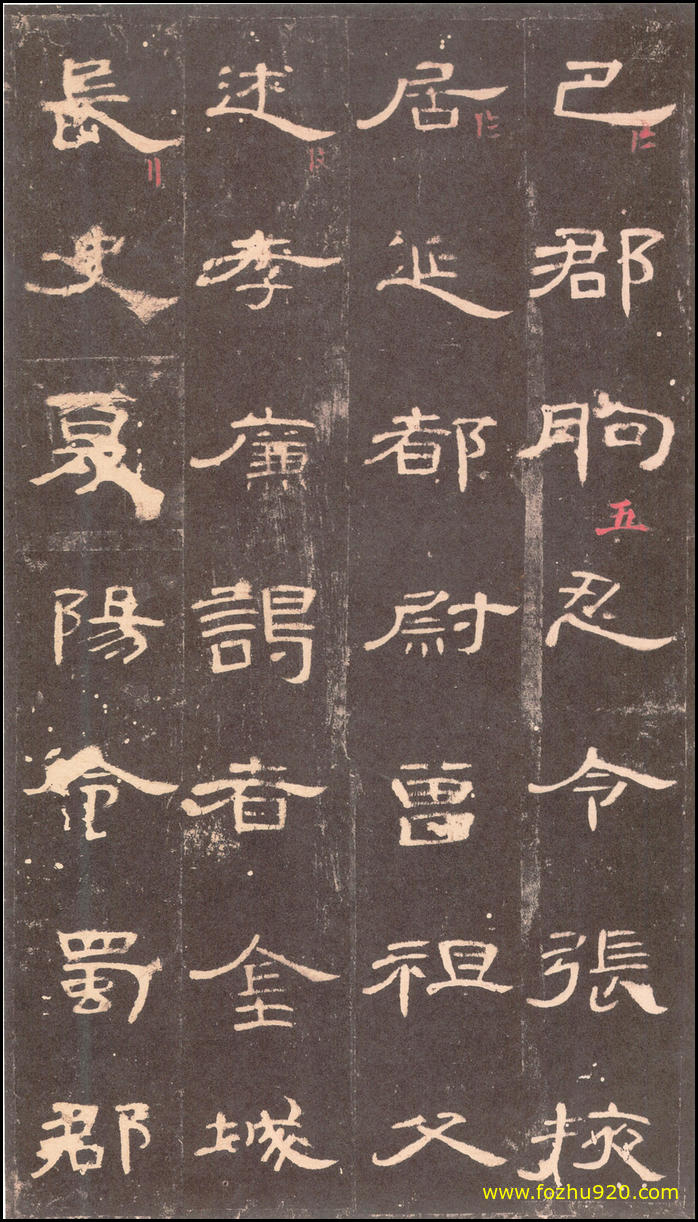 巴郡朐忍令張掖
居延都尉曾祖父
述孝廉謁者金城
長史夏陽令蜀郡
五
www.fozhu920.com